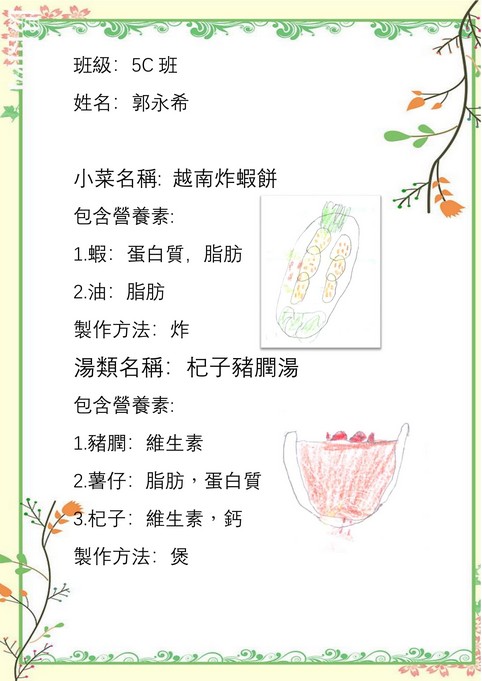 班級：5C 班
姓名：郭永希
小菜名稱: 越南炸蝦餅
包含營養素:
1.蝦：蛋白質，脂肪
2.油：脂肪
製作方法：炸
湯類名稱：杞子豬膶湯
包含營養素:
1.豬膶：維生素
2.薯仔：脂肪，蛋白質
3.杞子：維生素，鈣
製作方法：煲